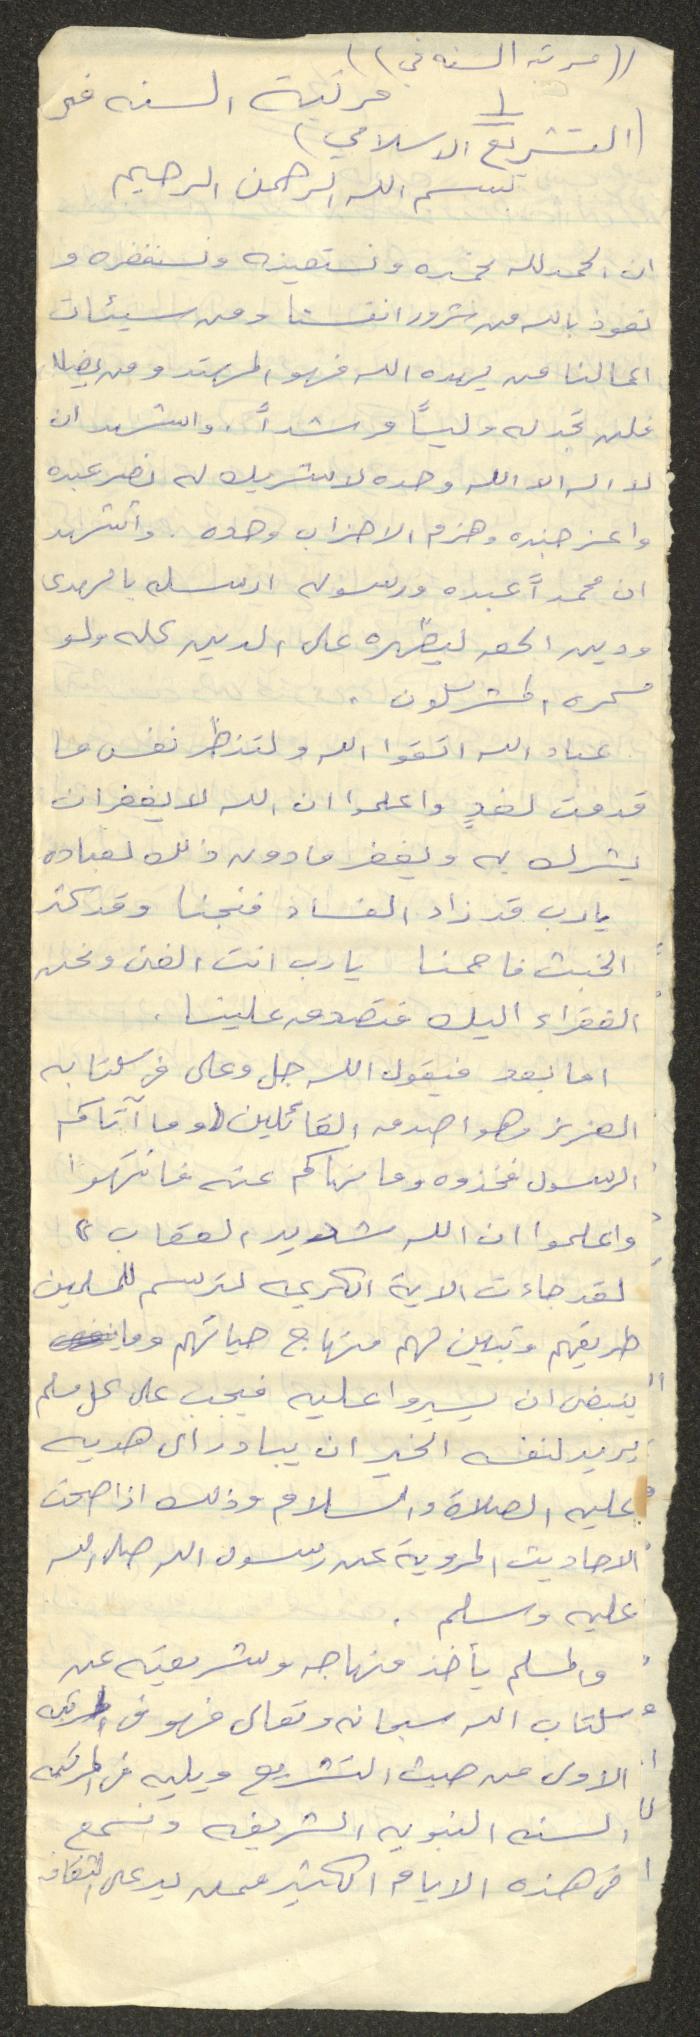 ((مرتبة السنه في))
١ مرتبة السنه في
(التشريع الاسلامي)
بسم الله الرحمن الرحيم
ان الحمد لله نحمده ونستعينه ونستغفره و
نعوذ بالله من شرور انفسنا ومن سيئات
اعمالنا من يهده الله فهو المهتد ومن يضلل
فلن تجد له ولياً مرشداً. واشهد ان
لا اله الا الله وحده لا شريك له نصر عبده
واعز جنده وهزم الاحزاب وحده. واشهد
ان محمداً عبده ورسوله ارسله بالهدى
ودين الحق ليظهره على الدين كله ولو
كره المشركون.
عباد الله اتقوا الله ولتنظر نفس ما
قدمت لغدٍ واعلموا ان الله لا يغفر ان
يشرك به ويغفر ما دون ذلك لعباده
يارب قد زاد الفساد فنجنا وقد كثر
الخبث فاحمنا يارب انت الغني ونحن
الفقراء اليك فتصدق علينا.
اما بعد فيقول الله جل وعلى في كتابه
العزيز وهو اصدق القائلين ((وما آتاكم
الرسول فخذوه وما نهاكم عنه فانتهوا
واعلموا ان الله شديد العقاب))
لقد جاءت الاية الكريمه لترسم للمسلمين
طريقهم وتبين لهم منهاج حياتهم وما
ينبغي ان يسيروا عليه فيجب على كل مسلم
يريد لنفسه الخير ان يبادر الى هديه
عليه الصلاة والسلام وذلك اذا صحت
الاحاديث المروية عن رسول الله صلى الله
عليه وسلم.
والمسلم يأخذ منهاجه وشريعته عن
كتاب الله سبحانه وتعالى فهو في المرتبه
الاولى من حيث التشريع ويليه في المرتبه
السنه النبويه الشريفه ونسمع
في هذه الايام الكثير ممن يدعي الثقافه